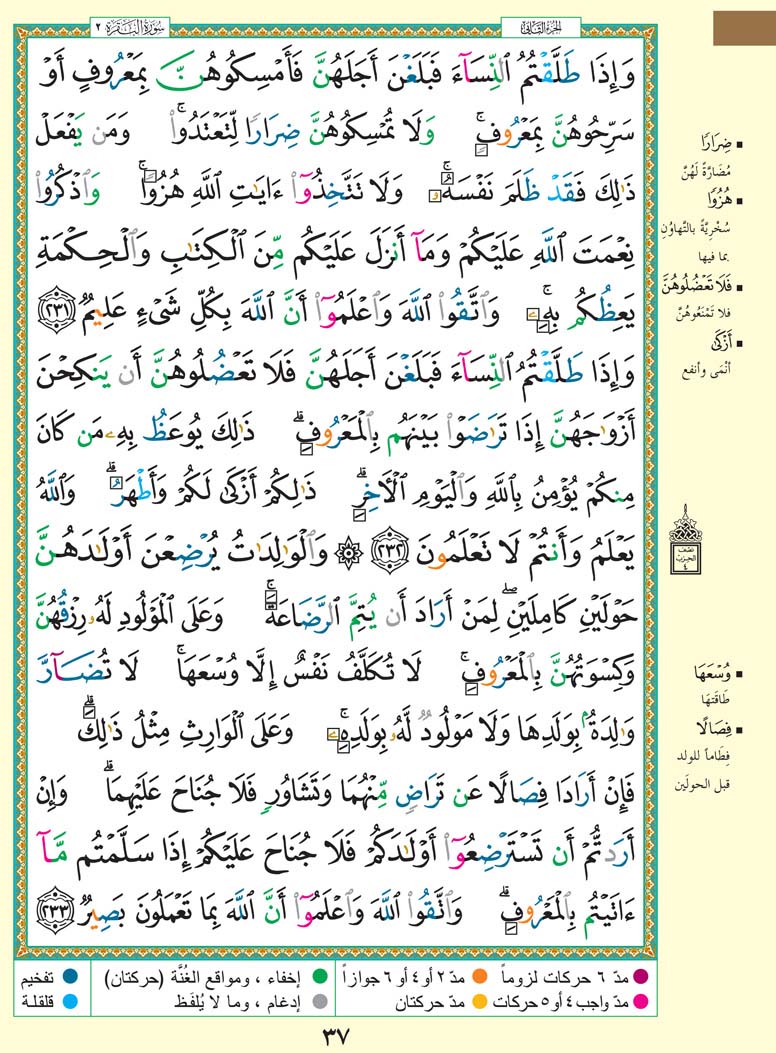 سورة البقرة ٢
الجزء الثاني
وَإِذَا طَلَّقْتُمُ ٱلنِّسَآءَ فَبَلَغْنَ أَجَلَهُنَّ فَأَمْسِكُوهُنَّ بِمَعْرُوفٍ أَوْ
سَرِّحُوهُنَّ بِمَعْرُوفٍ ۚ وَلَا تُمْسِكُوهُنَّ ضِرَارًا لِّتَعْتَدُوا۟ ۚ وَمَن يَفْعَلْ
ذَٰلِكَ فَقَدْ ظَلَمَ نَفْسَهُۥ ۚ وَلَا تَتَّخِذُوٓا۟ ءَايَٰتِ ٱللَّهِ هُزُوًا ۚ وَٱذْكُرُوا۟
نِعْمَتَ ٱللَّهِ عَلَيْكُمْ وَمَآ أَنزَلَ عَلَيْكُم مِّنَ ٱلْكِتَٰبِ وَٱلْحِكْمَةِ
يَعِظُكُم بِهِۦ ۚ وَٱتَّقُوا۟ ٱللَّهَ وَٱعْلَمُوٓا۟ أَنَّ ٱللَّهَ بِكُلِّ شَىْءٍ عَلِيمٌ ٢٣١
وَإِذَا طَلَّقْتُمُ ٱلنِّسَآءَ فَبَلَغْنَ أَجَلَهُنَّ فَلَا تَعْضُلُوهُنَّ أَن يَنكِحْنَ
أَزْوَٰجَهُنَّ إِذَا تَرَٰضَوْا۟ بَيْنَهُم بِٱلْمَعْرُوفِ ۗ ذَٰلِكَ يُوعَظُ بِهِۦ مَن كَانَ
مِنكُمْ يُؤْمِنُ بِٱللَّهِ وَٱلْيَوْمِ ٱلْءَاخِرِ ۗ ذَٰلِكُمْ أَزْكَىٰ لَكُمْ وَأَطْهَرُ ۗ وَٱللَّهُ
يَعْلَمُ وَأَنتُمْ لَا تَعْلَمُونَ ٢٣٢ ۞ وَٱلْوَٰلِدَٰتُ يُرْضِعْنَ أَوْلَٰدَهُنَّ
حَوْلَيْنِ كَامِلَيْنِ ۖ لِمَنْ أَرَادَ أَن يُتِمَّ ٱلرَّضَاعَةَ ۚ وَعَلَى ٱلْمَوْلُودِ لَهُۥ رِزْقُهُنَّ
وَكِسْوَتُهُنَّ بِٱلْمَعْرُوفِ ۚ لَا تُكَلَّفُ نَفْسٌ إِلَّا وُسْعَهَا ۚ لَا تُضَآرَّ
وَٰلِدَةٌۢ بِوَلَدِهَا وَلَا مَوْلُودٌ لَّهُۥ بِوَلَدِهِۦ ۚ وَعَلَى ٱلْوَارِثِ مِثْلُ ذَٰلِكَ ۗ
فَإِنْ أَرَادَا فِصَالًا عَن تَرَاضٍ مِّنْهُمَا وَتَشَاوُرٍ فَلَا جُنَاحَ عَلَيْهِمَا ۗ وَإِنْ
أَرَدتُّمْ أَن تَسْتَرْضِعُوٓا۟ أَوْلَٰدَكُمْ فَلَا جُنَاحَ عَلَيْكُمْ إِذَا سَلَّمْتُم مَّآ
ءَاتَيْتُم بِٱلْمَعْرُوفِ ۗ وَٱتَّقُوا۟ ٱللَّهَ وَٱعْلَمُوٓا۟ أَنَّ ٱللَّهَ بِمَا تَعْمَلُونَ بَصِيرٌ ٢٣٣
ضِرَارًا
مُضَارَّةً لَهُنَّ
هُزُوًا
سُخْرِيَّةً بالتَّهاوُنِ
بما فيها
فَلَا تَعْضُلُوهُنَّ
فلا تَمْنَعُوهُنَّ
أَزْكَىٰ
أنْمَى وأنفع
نصف
الحزب
٤
وُسْعَهَا
طَاقَتَهَا
فِصَالًا
فِطَاماً للولد
قبل الحولَين
مدّ ٦ حركات لزوماً
مدّ ٢ أو ٤ أو ٦ جوازاً
إخفاء ، ومواقع الغُنَّة (حركتان)
تفخيم
مدّ واجب ٤ أو ٥ حركات
مدّ حركتان
إدغام ، وما لا يُلفَظ
قلقلة
٣٧